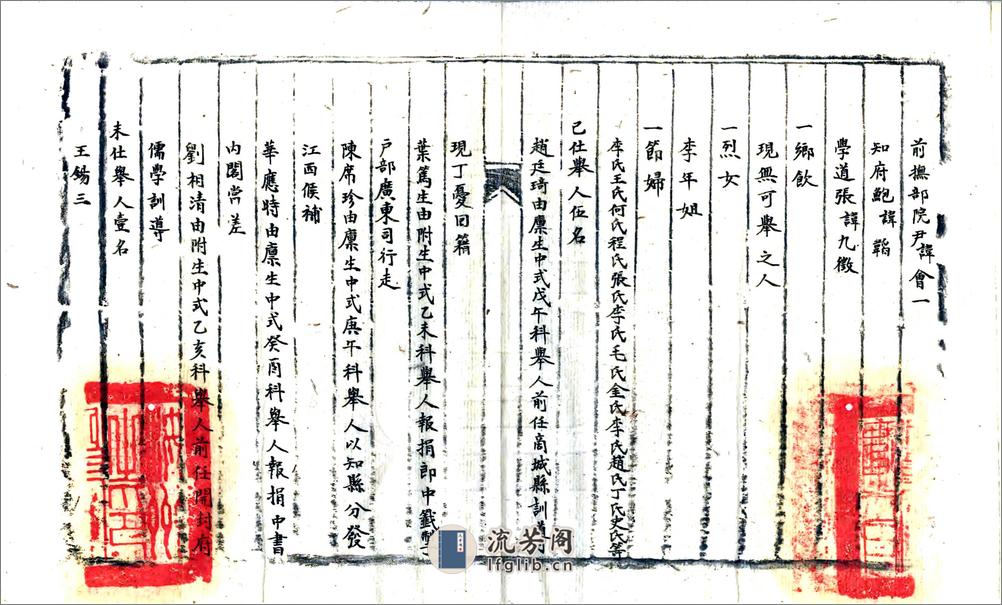 前撫部院尹諱會一
知府鮑諱韜
學道張諱九徵
一鄉飲
現無可舉之人
一烈女
李年姐
一節婦
李氏王氏何氏程氏張氏李氏毛氏金氏李氏趙氏丁氏史氏等
已仕舉人伍名
趙廷琦由廩生中式戊午科舉人前任商城縣訓導
現丁憂回籍
葉篤生由附生中式乙未科舉人報捐郎中籤掣
戶部廣東司行走
陳席珍由廩生中式庚午科舉人以知縣分發
江西候補
華應時由廩生中式癸酉科舉人報捐中書
內閣當差
劉相清由附生中式乙亥科舉人前任開封府
儒學訓導
未仕舉人壹名
王錫三
流芳阁
lfglib.cn